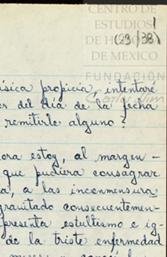 CENTRO DE
ESTUDIOS
DE HISTORIA
DE MEXICO
FUNDACIÓN
(3) (38)
propicia, intentaré
es del día de la fecha
remitirle alguno?
ora estoy, al margen-
que pudiera consagrar
a, a las inconmensura-
gratuitado consecuentemen-
presenta estultismo e ig-
de la triste enfermedad